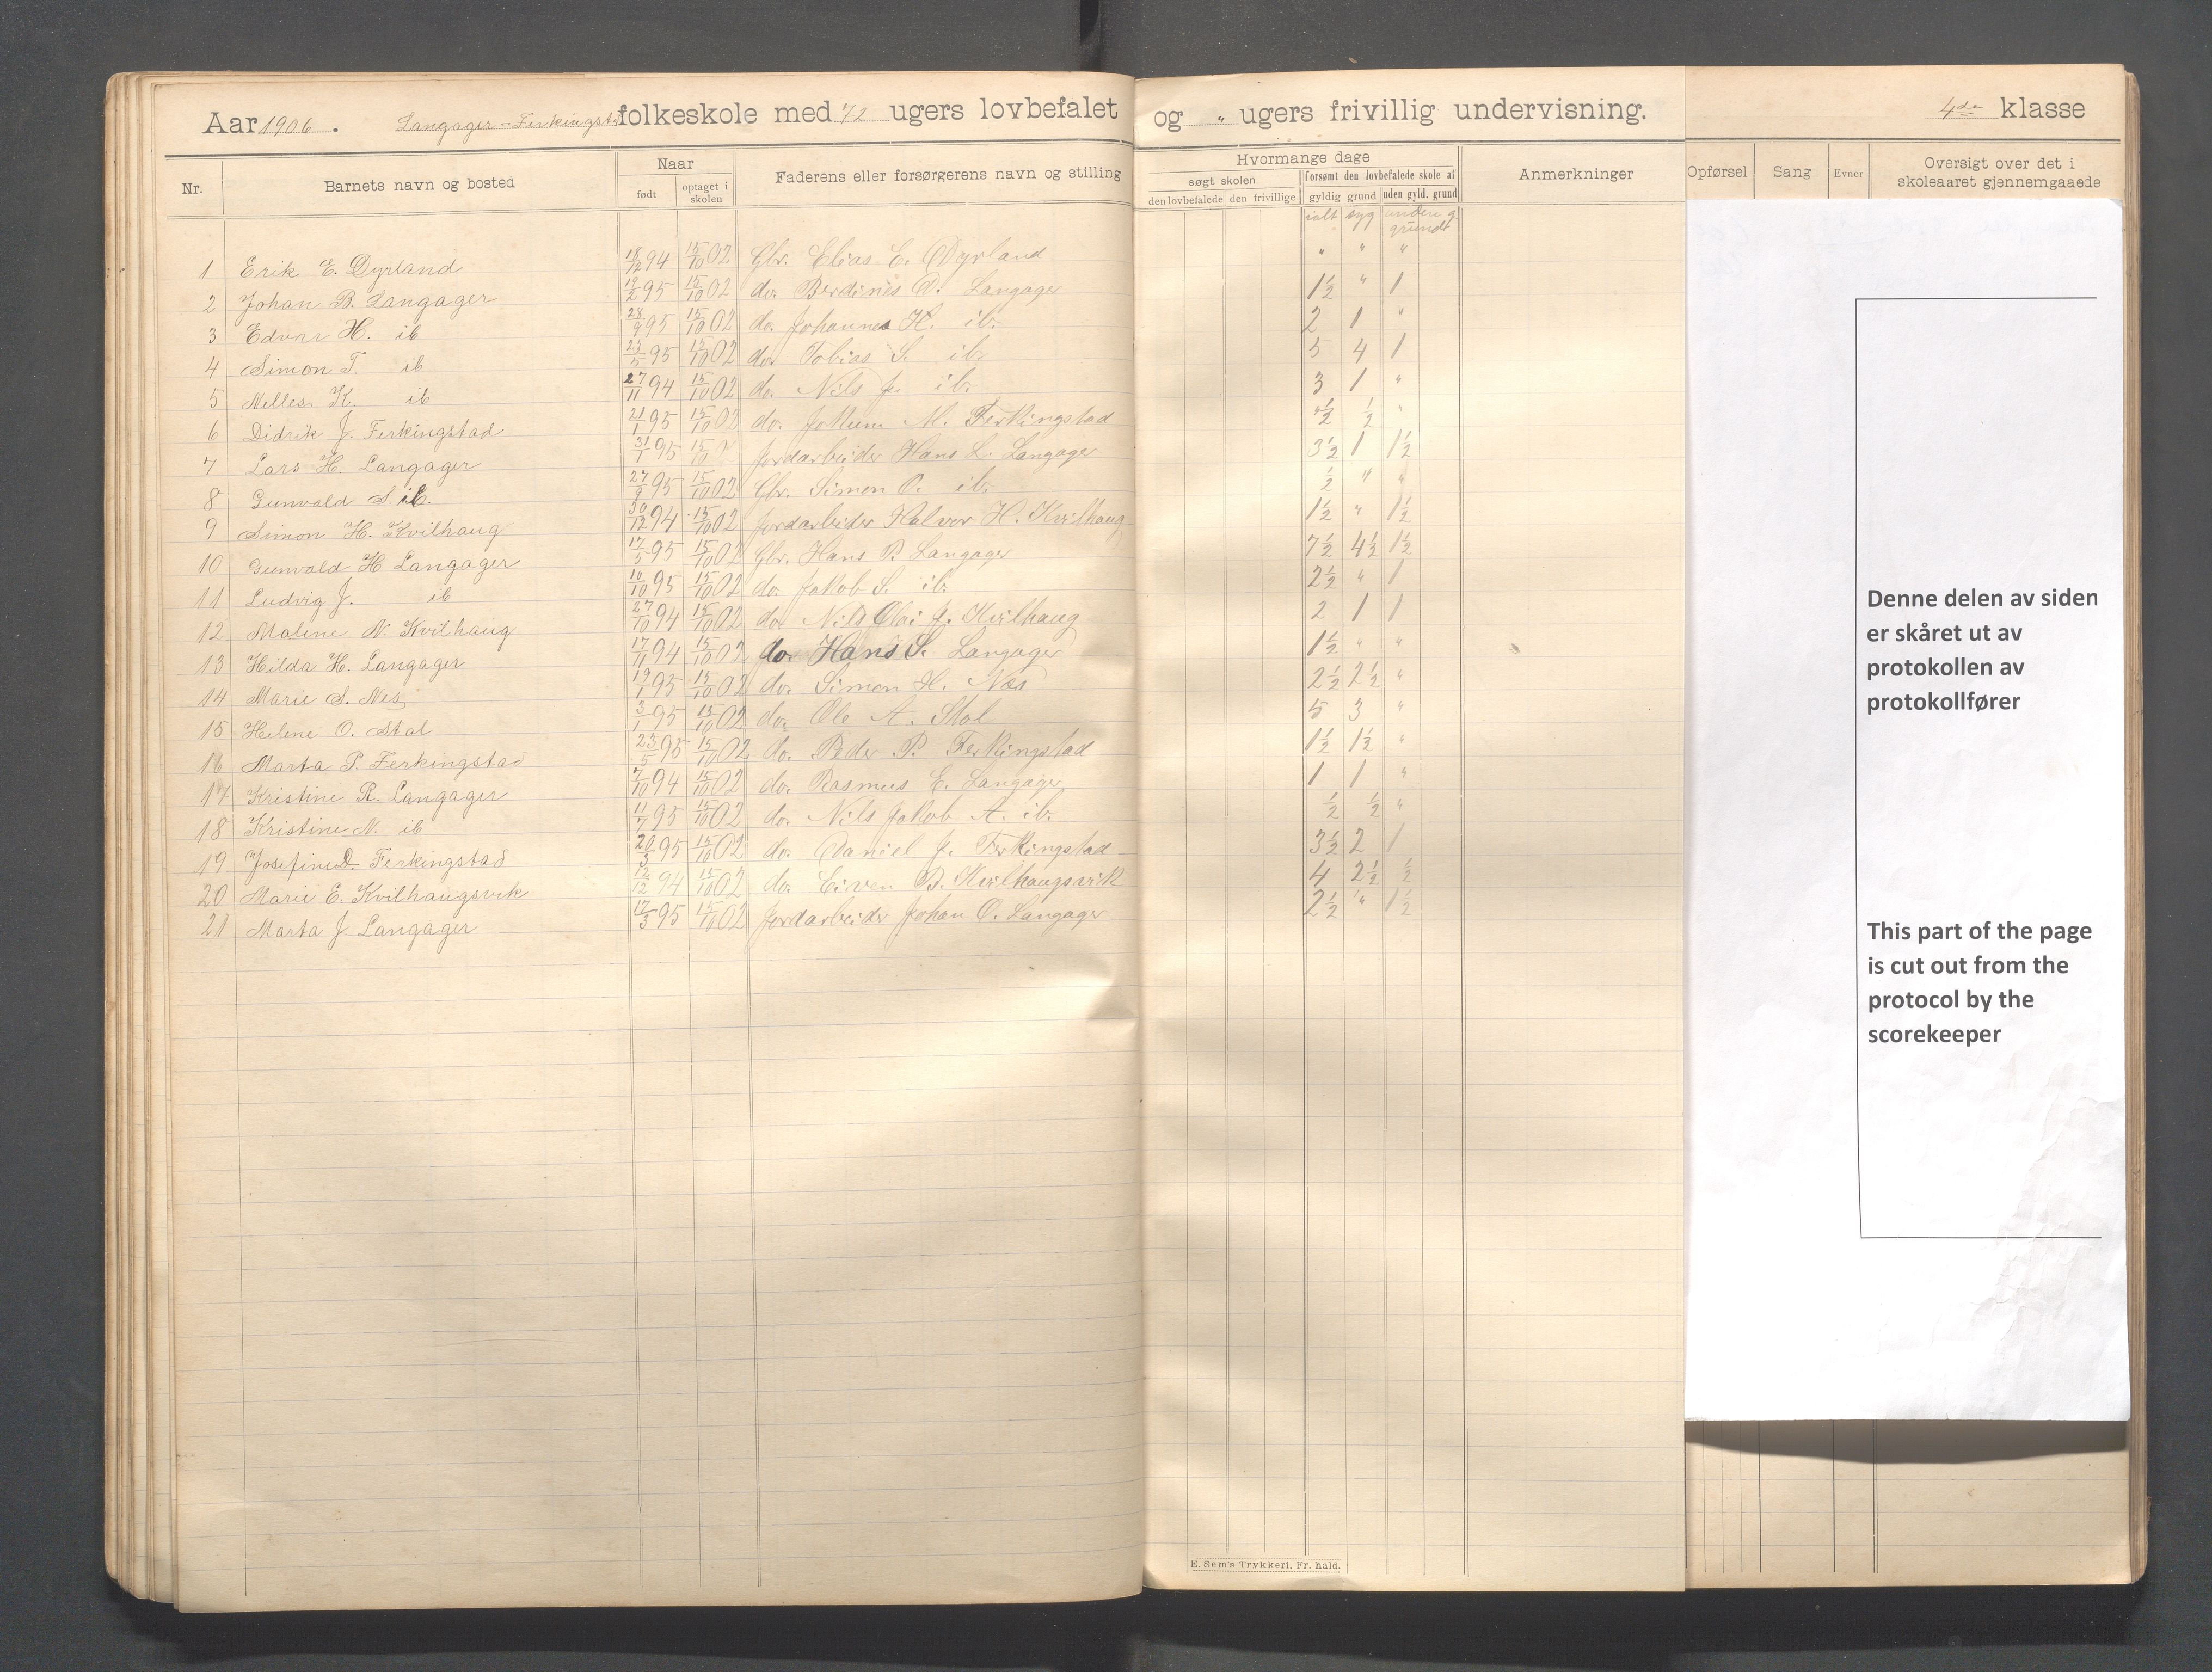 Aar 1906. Langager-Ferkingst. folkeskole med 72 ugers lovbefalet og " ugers frivillig undervisning. 4de klasse
Nr. Barnets navn og bosted Naar født optaget i skolen Faderens eller forsørgerens navn og stilling Hvormange dage søgt skolen den lovbefalede den frivillige forsømt den lovbefalede skole af gyldig grund uden gyld. grund Anmerkninger Opførsel Sang Evner Oversigt over det i skoleaaret gjennemgaaede
ialt syg
1 Erik E. Dyrland 18/12 94 15/10 02 Gbr. Elias E. Dyrland " " "
2 Johan B. Langager 19/2 95 15/10 02 do. Berdines D. Langager 1½ " 1
3 Edvar H. ib 28/9 95 15/10 02 do. Johannes H. ib. 2 1 "
4 Simon T. ib 23/5 95 15/10 02 do. Tobias S. ib. 5 4 1
5 Nilles K. ib 27/11 94 15/10 02 do. Nils J. ib. 3 1 "
6 Didrik J. Ferkingstad 21/1 95 15/10 02 do. M. Ferkingstad ½ "
7 Lars H. Langager 31/1 95 15/10 Jordarbeider Hans L. Langager 3½ 1 1½
8 Gunvald S. ib. 27/9 95 15/10 02 Gbr. Simon O. ib. ½ " "
9 Simon H. Kvilhaug 30/12 94 15/10 02 Jordarbeider Halvor H. Kvilhaug 1½ " 1½
10 Gunvald H Langager 17/5 95 15/10 02 Gbr. Hans P. Langager 7½ 4½ 1½
11 Ludvig J. ib 10/10 95 15/10 02 do. Jakob S. ib. 2½ " 1
12 Malene N. Kvilhaug 27/10 94 15/10 02 do. Nils J. Kvilhaug 2 1 1
13 Hilda H. Langager 17/11 94 15/10 02 do. Hans S. Langager 1½ " "
14 Marie S. Nes 19/1 95 15/10 02 do. Simon H. Næs 2½ 2½ "
15 Helene O. Stol 3/1 95 15/10 02 do. Ole A. Stol 5 3 "
16 Marta P. Ferkingstad 23/5 95 15/10 02 do. Peder P. Ferkingstad 1½ 1½ "
17 Kristine R. Langager 7/10 94 15/10 02 do. Rasmus E. Langager 1 1 "
18 Kristine N. ib 11/7 95 15/10 02 do. Nils Jakob A. ib. ½ ½ "
19 Josefine D. Ferkingstad 20/3 95 15/10 02 do. Daniel J. Ferkingstad 3½ 2 1
20 Marie E. Kvilhaugsvik 12/12 94 15/10 02 do. Eiven B. Kvilhaugsvik 4 2½ ½
21 Marta J Langager 17/3 95 15/10 02 Jordarbeider Johan O. Langager 2½ " 1½
E. Sem's Trykkeri, Fr. hald.
Denne delen av siden
er skåret ut av
protokollen av
protokollfører
This part of the page
is cut out from the
protocol by the
scorekeeper